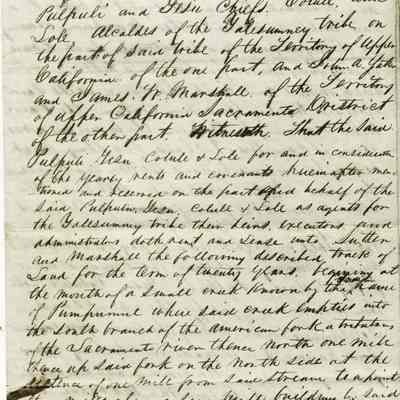 Pulpuli and Gesu Chiefs. Colule, and
Sole Alcaldes of the Yalesumney tribe on
the part of said tribe of the Territory of Upper
California of the one part, and John A Sutter
and James. W. Marshall, of the Territory
of Upper California Sacramento District
of the other part. Witnesseth. That the said
Pulpuli Gesu Colule & Sole for and in consideration
of the yearly rents and covenants hereinafter men
tioned and reserved on the part and behalf of the
said Pulpuli, Gesu, Colule & Sole as agents for
the Yalesumney tribe their heirs, executors and
administrators doth rent and lease unto Sutter
and Marshall the following described track of
Land for the term of twenty years, beginning at
the mouth of a small creek known by the Indian name
of Pumpumul where said creek empties into
the South branch of the american fork a tributary
of the Sacramento river thence North one mile
thence up said fork on the North side at the
distance of one mile from said stream to a point